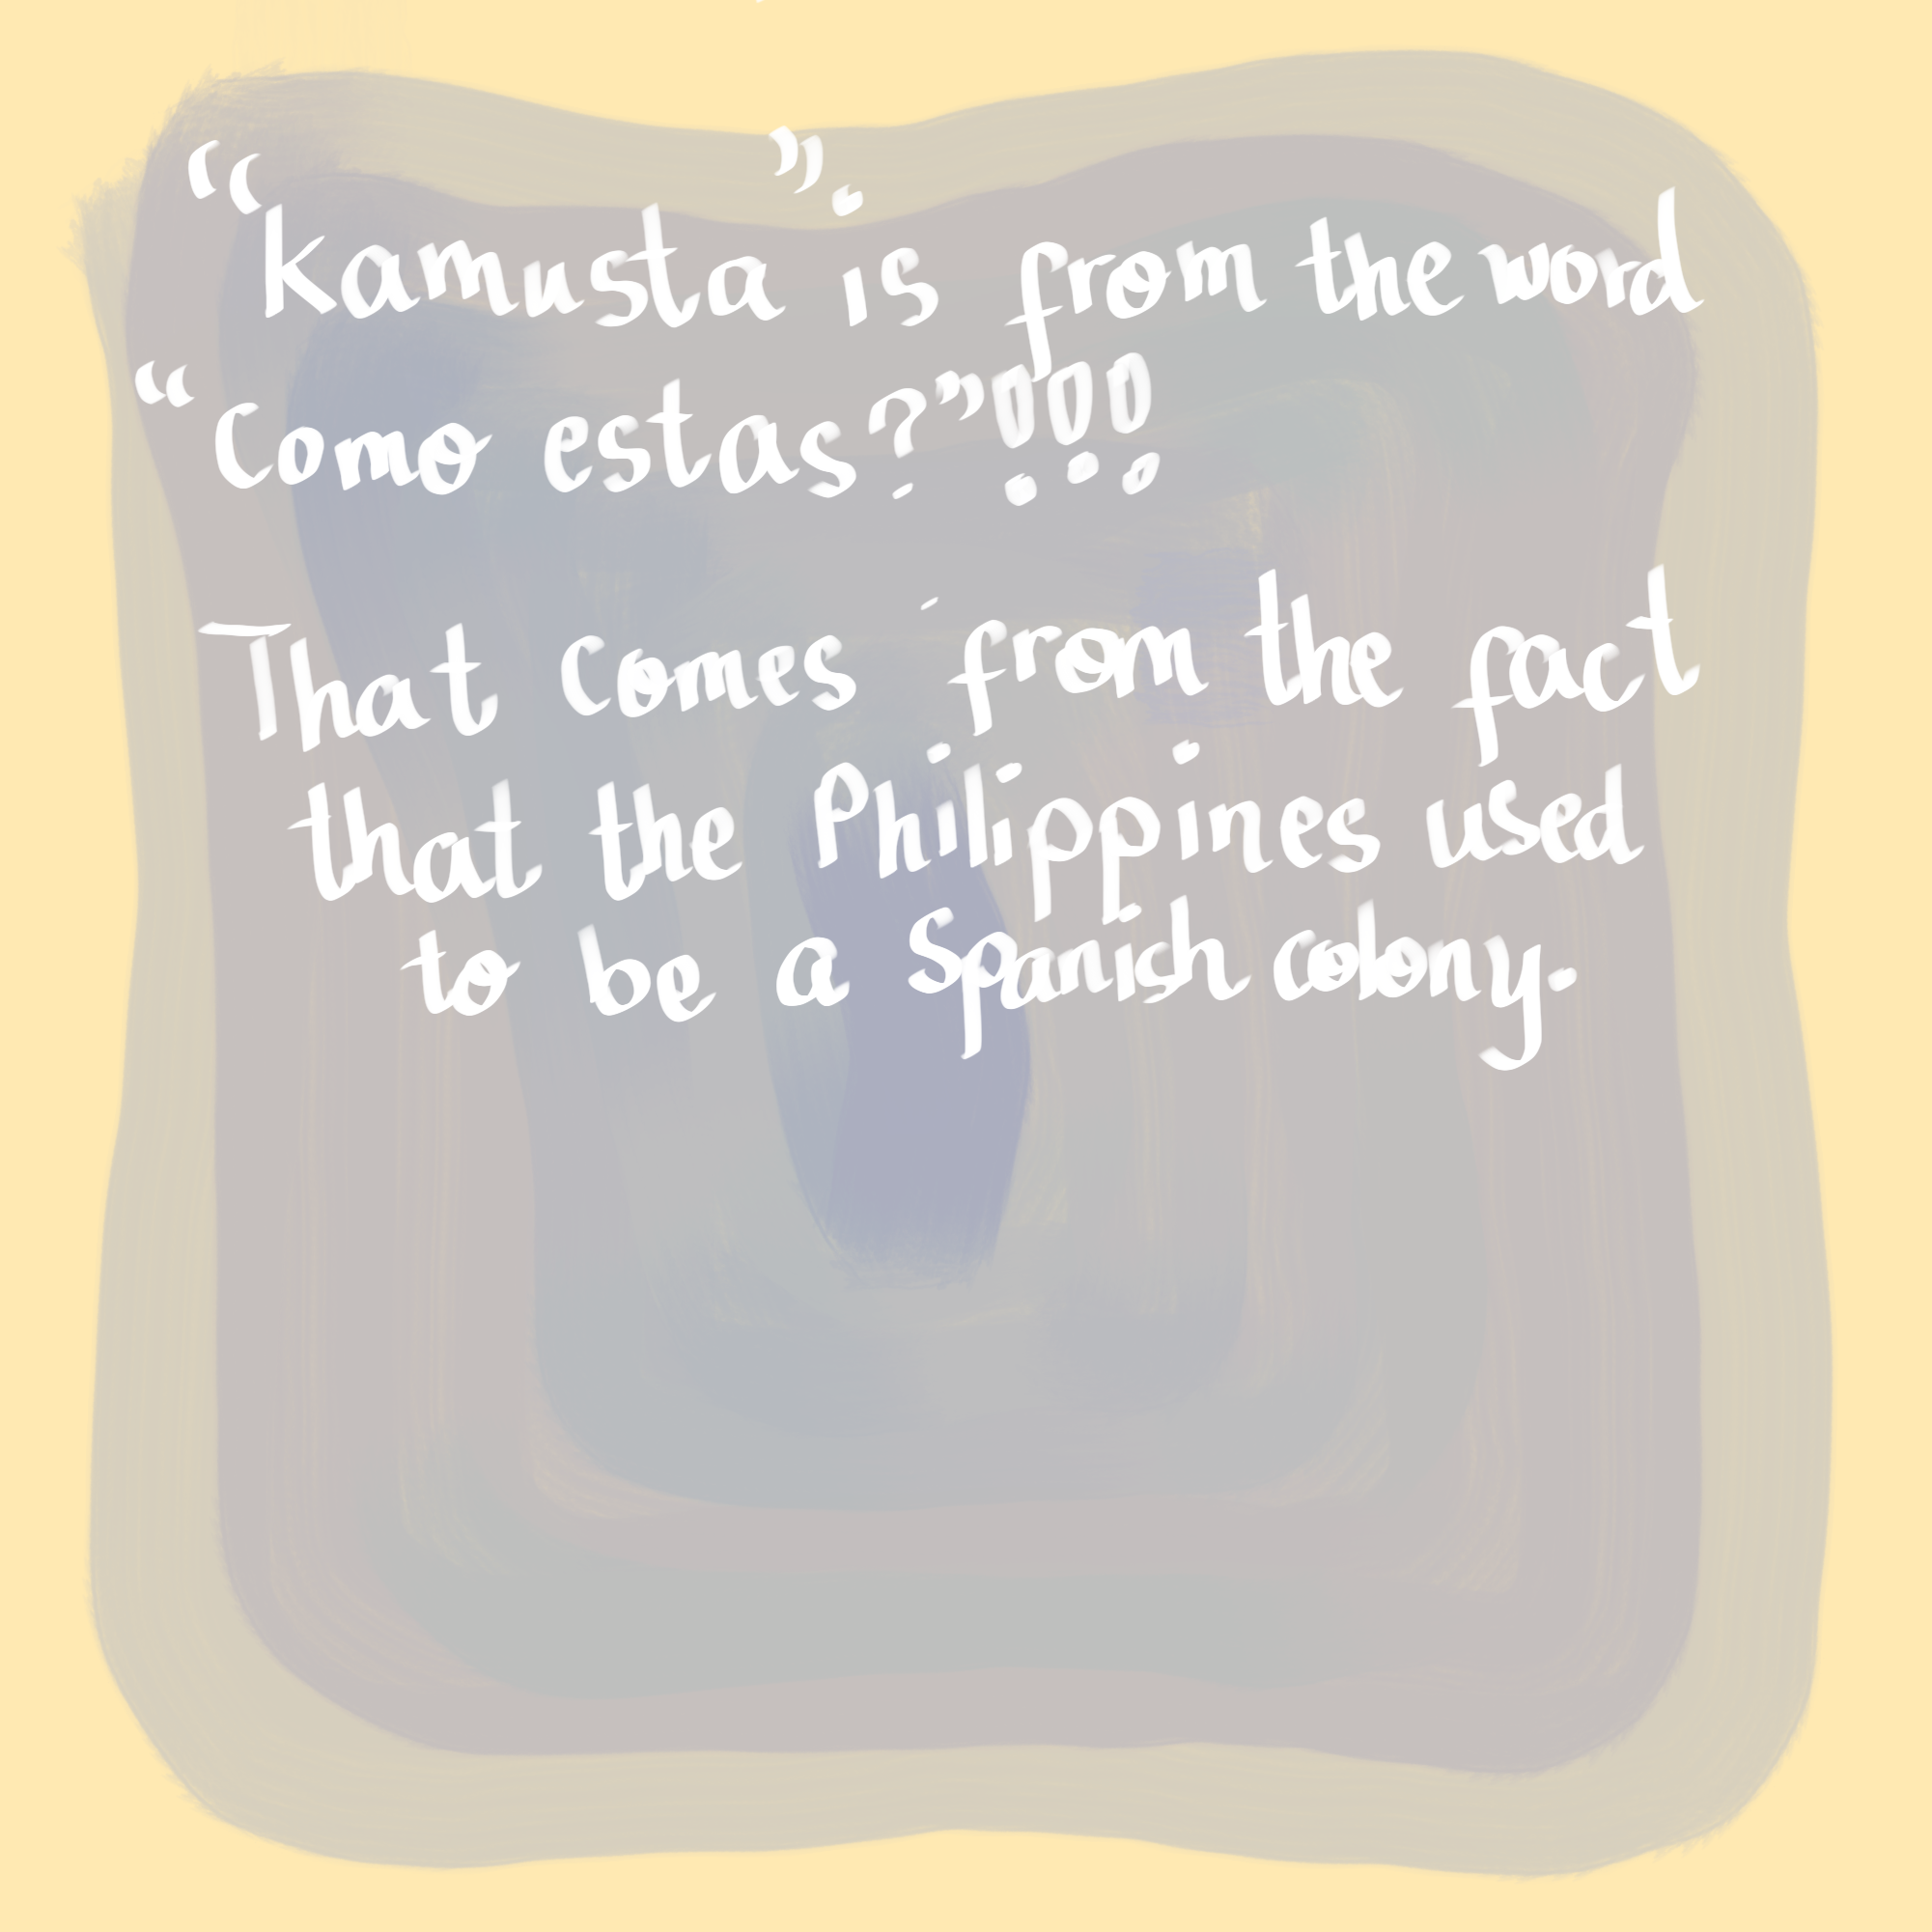 "Kamusta" is from the word
"Como estas?"!!!
That comes from the fact
that the Philippines used
to be a Spanish colony.